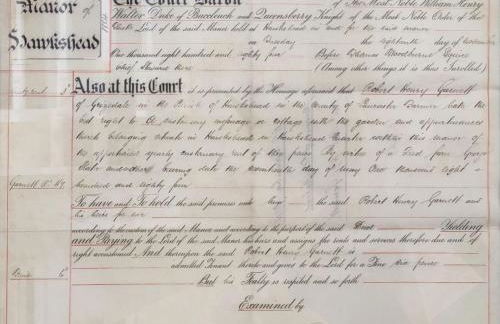 Manor of Hawkshead
The Court Baron of The Most Noble William Henry
Walter Duke of Buccleuch and Queensberry Knight of the Most Noble Order of the
Lord of the said Manor held at Hawkshead in and for the said Manor
on Tuesday the eighteenth day of
One thousand eight hundred and eighty five Before Thomas Esquire
Chief Steward there (Among other things it is thus Inrolled)
Also at this Court it is presented by the Homage aforesaid that Robert Henry Garnett
of Grizedale in the Parish of Hawkshead in the County of Lancaster hath the
right to All customary messuage or cottage with the garden and appurtenances
thereto belonging situate in Hawkshead in Hawkshead Quarter within this Manor of
the apportioned yearly customary rent of five pence By virtue of a Deed from George
bearing date the day of May One thousand eight
hundred and eighty five
Garnett R. Hy.
To have and To hold the said premises unto him the said Robert Henry Garnett and
his heirs for ever
according to the custom of the said Manor and according to the purport of the said Deed Yielding
and Paying to the Lord of the said Manor his heirs and assigns the rents and services therefore due and of
right accustomed And thereupon the said Robert Henry Garnett is
admitted Tenant thereto and gives to the Lord for a Fine six pence
But his Fealty is respited and so forth
Examined by